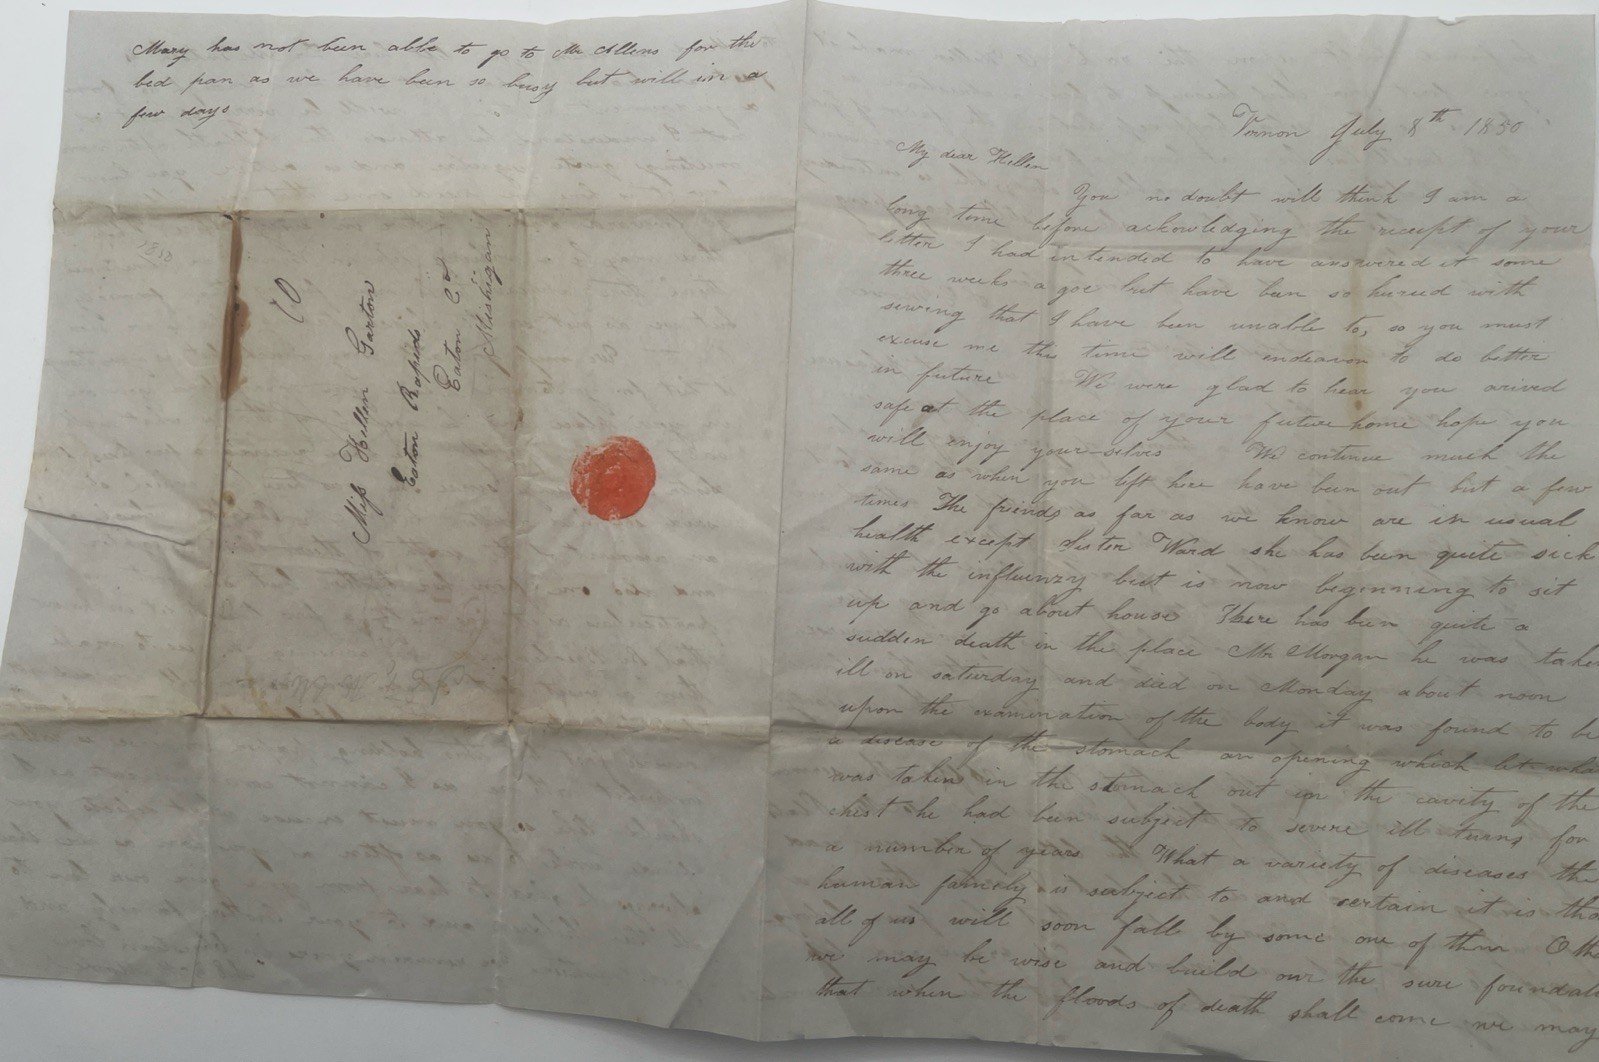 Mary has not been abbe to go to Mr Allens for the
bed pan as we have been so busy but will in a
few days
1850
10
Miss Hellen Garton
Eaton Rapids
Eaton Co
Mishigan
Vernon July 8th 1850
My dear Hellen
You no doubt will think I am a
long time before acknowledging the receipt of your
letter I had intended to have answered it some
three weeks a goe but have been so hured with
sewing that I have been unable to, so you must
excuse me this time will endeavor to do better
in future We were glad to hear you arived
safe at the place of your future home hope you
will enjoy your-selves We continue much the
same as when you left here have been out but a few
times The friends as far as we know are in usual
health except Sister Ward she has been quite sick
with the influenzy but is now beginning to sit
up and go about house There has been quite a
sudden death in the place Mr Morgan he was taken
ill on saturday and died on Monday about noon
upon the examination of the body it was found to be
a disease of the stomach an opening which let what
was taken in the stomach out in the cavity of the
chest he had been subject to severe ill turns for
a number of years What a variety of diseases the
human famely is subject to and certain it is tha
all of us will soon fall by some one of them O tha
we may be wise and build our the sure foundati
that when the floods of death shall come we may